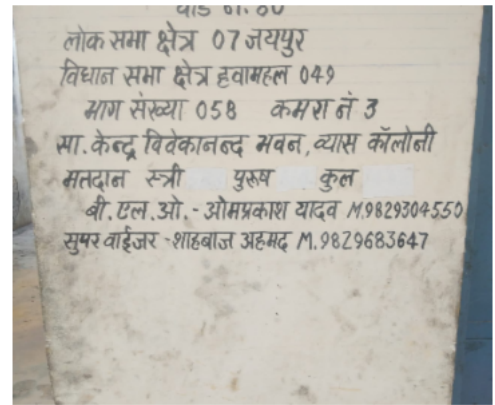 वार्ड नं. 60
लोक सभा क्षेत्र 07 जयपुर
विधान सभा क्षेत्र हवामहल 049
भाग संख्या 058 कमरा नं 3
सा. केन्द्र विवेकानन्द भवन, व्यास कॉलोनी
मतदान स्त्री पुरूष कुल
बी. एल. ओ. - ओमप्रकाश यादव M.9829304550
सुपरवाईजर - शाहबाज अहमद M.9829683647